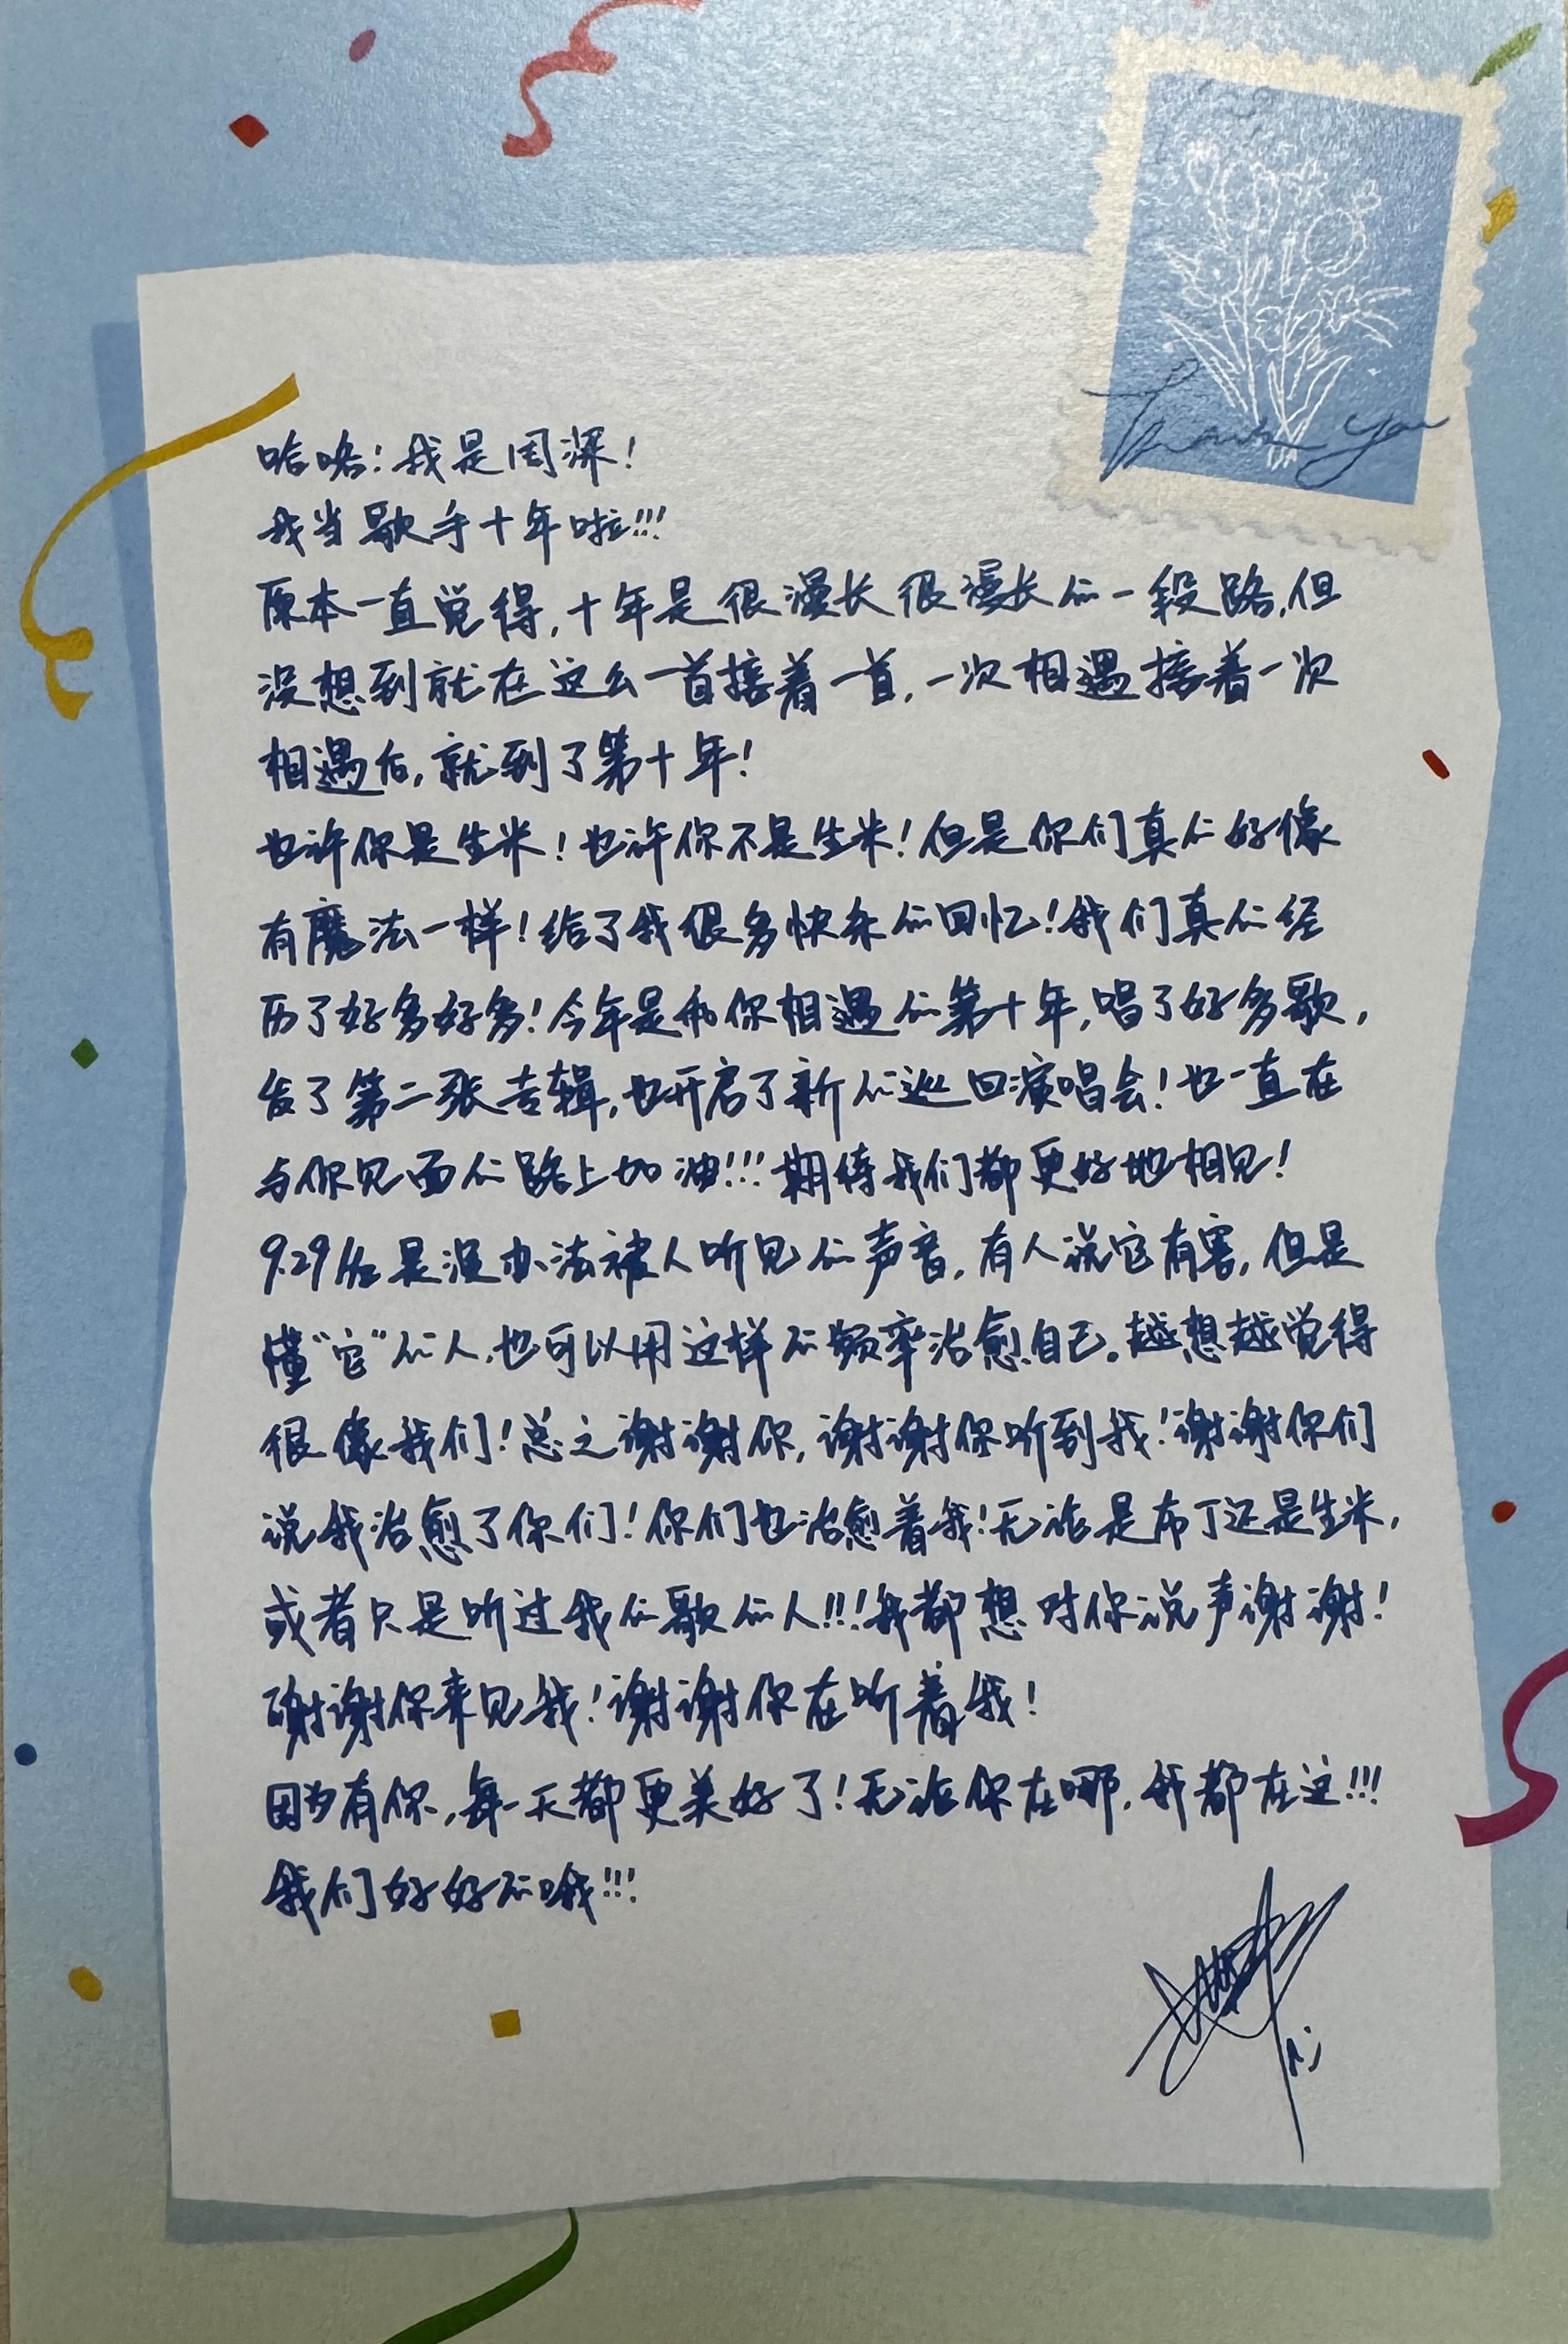 Thank you
哈喽！我是周深！
我当歌手十年啦!!!
原本一直觉得，十年是很漫长很漫长的一段路，但
没想到就在这么一首接着一首，一次相遇接着一次
相遇后，就到了第十年！
也许你是生米！也许你不是生米！但是你们真的好像
有魔法一样！给了我很多快乐的回忆！我们真的经
历了好多好多！今年是和你相遇的第十年，唱了好多歌，
发了第二张专辑，也开启了新的巡回演唱会！也一直在
与你见面的路上加油!!!期待我们都更好地相见！
9.29Hz是没办法被人听见的声音，有人说它有害，但是
懂“它”的人，也可以用这样的频率治愈自己。越想越觉得
很像我们！总之谢谢你，谢谢你听到我！谢谢你们
说我治愈了你们！你们也治愈着我！无论是布丁还是生米，
或者只是听过我的歌的人!!!我都想对你说声谢谢！
谢谢你来见我！谢谢你在听着我！
因为有你，每一天都更美好了！无论你在哪，我都在这!!!
我们好好的哦!!!